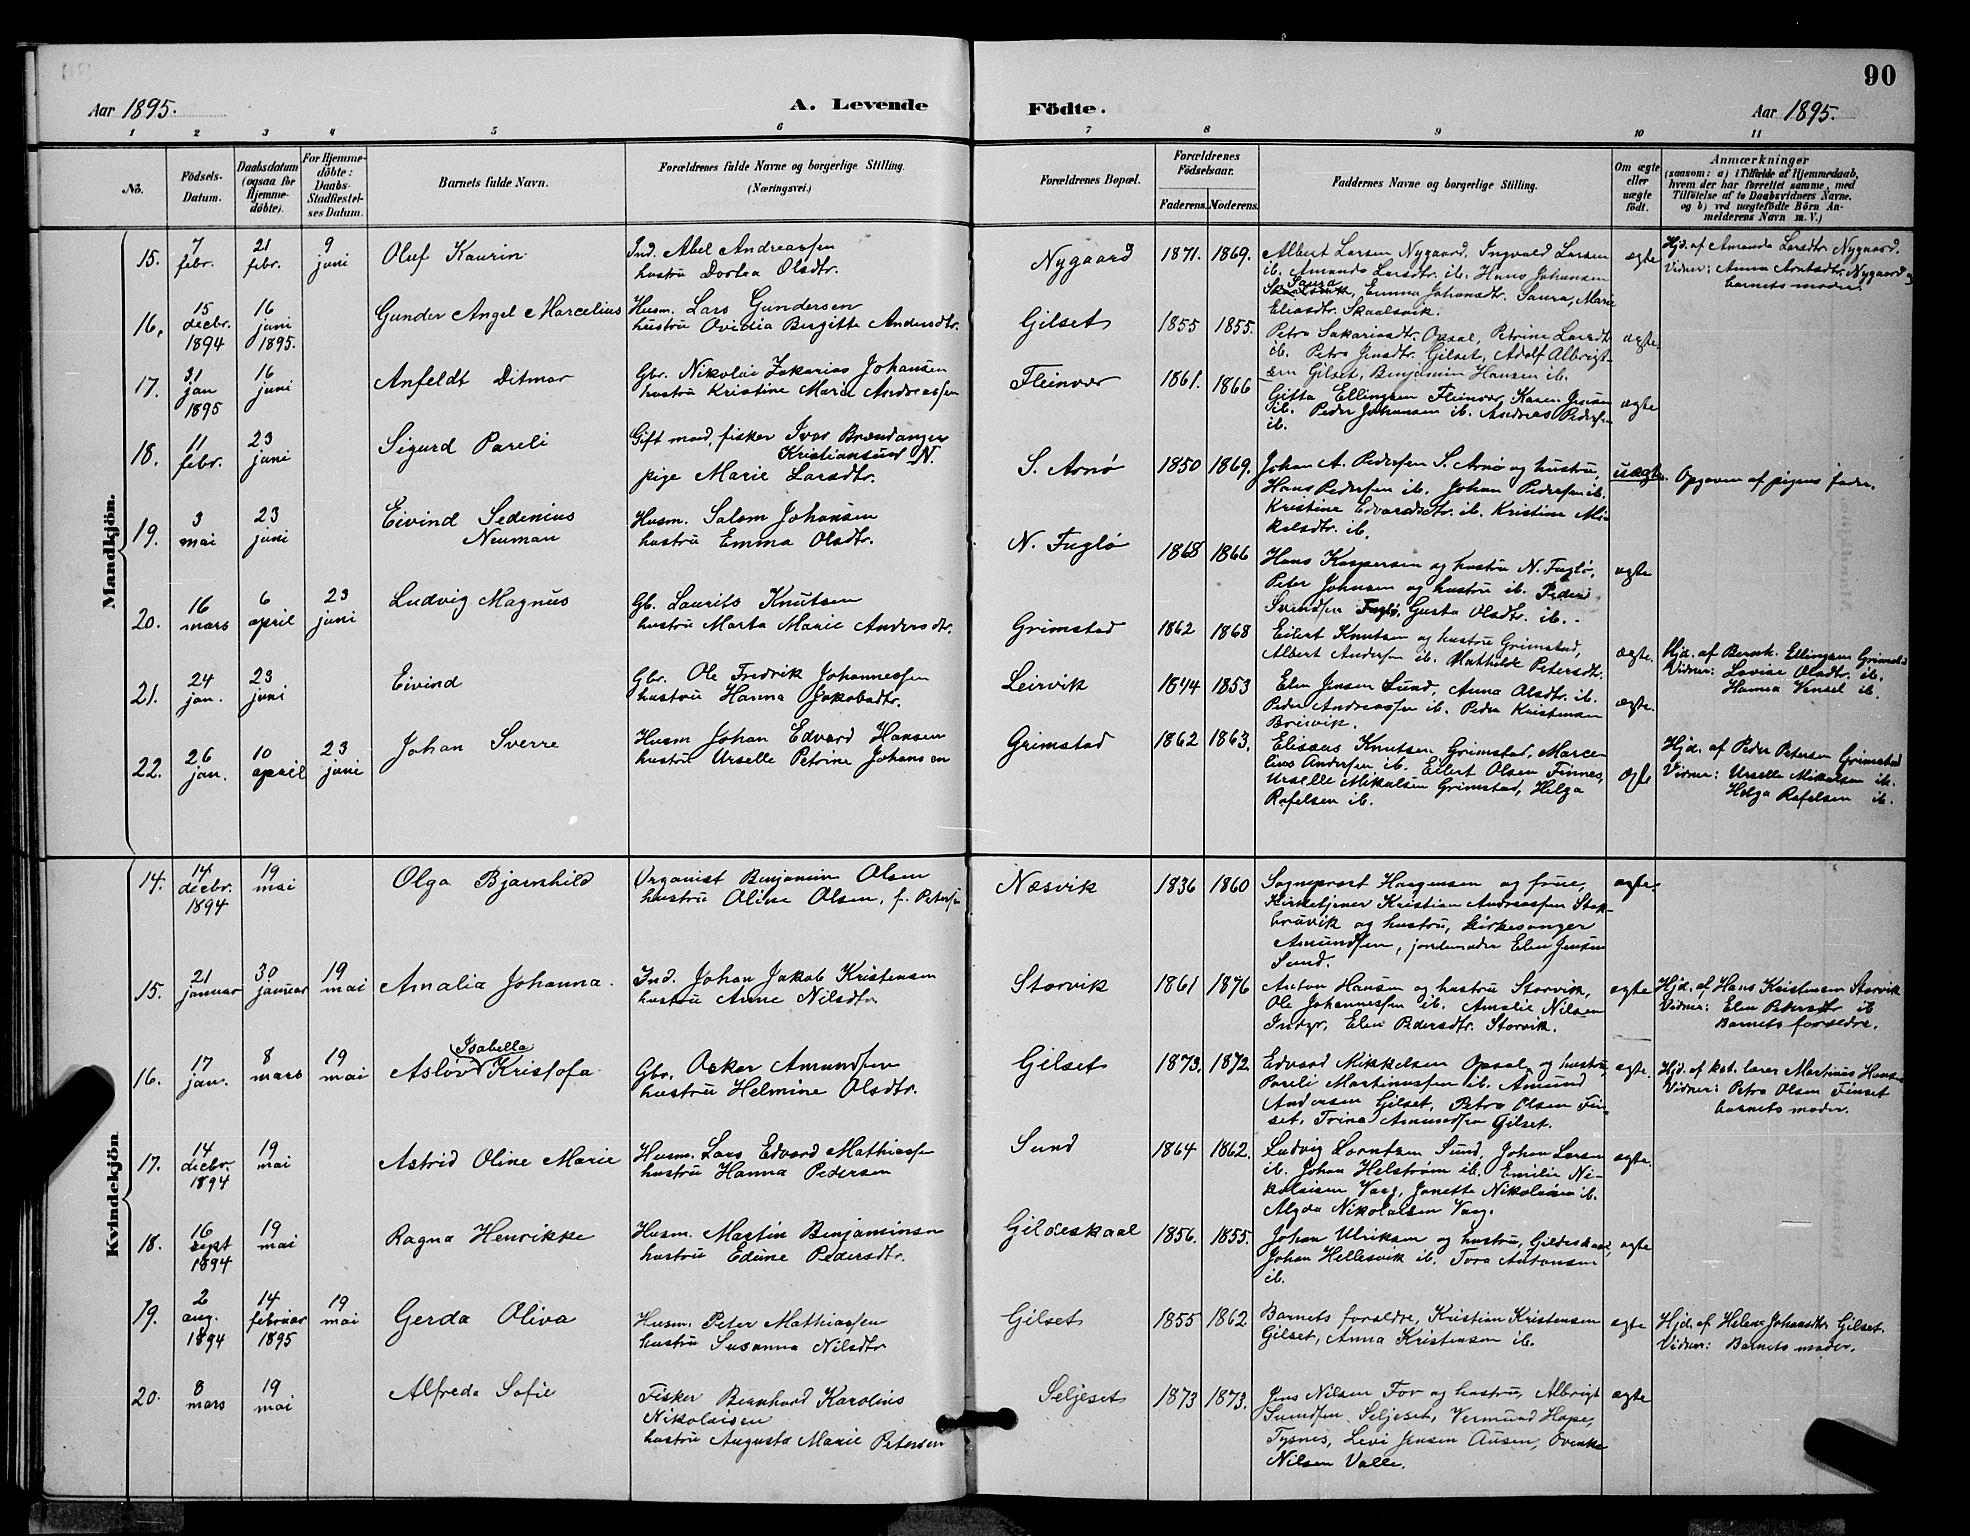 90
Aar 1895.
A. Levende
Födte.
Aar 1895.
1 2 3 4 5 6 7 8 9 10 11
No.
Födsels-
Datum.
Daabsdatum
(ogsaa for
Hjemme-
döbte).
For Hjemme-
döbte:
Daabs-
Stadfæstel-
ses Datum.
Barnets fulde Navn.
Forældrenes fulde Navne og borgerlige Stilling.
(Næringsvei.)
Forældrenes Bopæl.
Forældrenes
Födselsaar.
Faderens. Moderens.
Faddernes Navne og borgerlige Stilling.
Om ægte
eller
uægte
födt.
Anmærkninger
(saasom: a) i Tilfælde af Hjemmedaab,
hvem der har forrettet samme, med
Tilföielse af to Daabsvidners Navne,
og b) ved uægtefödte Börn An-
melderens Navn m. V.)
Mandkjön.
15. 7 febr. 21 febr. 9 juni Oluf Kaurin
Ind. Abel Andreassen
hustru Dortea Olsdtr.
Nygaard 1871. 1869.
Albert Larsen Nygaard, Ingvald Larsen
ib. Amanda Larsdtr. ib. Hans Johansen
Saura
Skaalsvik, Emma Johansdtr. Saura, Marie
Eliasdtr. Skaalsvik.
ægte
Hjd. af Amanda Larsdtr. Nygaard.
Vidner: Anna Arntsdtr. Nygaard og
barnets moder.
16. 15 decbr. 1894 16 juni 1895. Gunder Angel Marcelius
Husm. Lars Gundersen
hustru Ovidia Birgitte Andersdtr.
Gilset 1855 1855.
Petra Sakariasdtr. Opsal, Petrine Larsdtr.
ib. Petra Jensdtr. Gilset, Adolf Albrigt-
sen Gilset, Benjamin Hansen ib.
ægte.
17. 31 jan 1895 16 juni Anfeldt Ditmar
Gbr. Nikolai Zakarias Johansen
hustru Kristine Marie Andreassen
Fleinvær 1861. 1866
Gifta Ellingsen Fleinvær, Karen Jensen
ib. Peder Johansen ib. Andreas Pedersen
ib.
ægte
18. 11 febr. 23 juni Sigurd Pareli
Gift mand, fisker Ivar Brandanger
Kristiansund N.
pige Marie Larsdtr.
S. Arnø 1850 1869.
Johan A. Pedersen S. Arnø og hustru,
Hans Pedersen ib. Johan Pedersen ib.
Kristine Edvardsdtr. ib. Kristine Mi-
kelsdtr. ib.
uægte.
Opgaven af pigens fader.
19. 3 mai 23 juni Eivind Sedenius
Neuman
Husm. Salom Johansen
hustru Emma Olsdtr.
N. Fuglø 1868 1866
Hans Kaspersen og hustru N. Fuglø,
Peter Johnsen og hustru ib. Peder
Svendsen Fuglø, Gusta Olsdtr. ib.
ægte
20. 16 mars 6 april 23 juni Ludvig Magnus
Gb. Laurits Knutsen
hustru Marta Marie Andersdtr.
Grimstad 1862 1868
Eilert Knutsen og hustru Grimstad,
Albert Andersen ib. Mathilde Petersdtr.
ægte.
Hjd. af Bernh. Ellingsen Grimstad
Vidner: Lovise Olsdtr. ib.
Hanna Vensel ib.
21. 24 jan. 23 juni Eivind
Gbr. Ole Fredrik Johannessen
hustru Hanna Jakobsdtr.
Leirvik 1844 1853
Elen Jensen Sund, Anna Olsdtr. ib.
Peder Andreassen ib. Peder Kristensen
Breivik.
ægte.
22. 26 jan. 10 april 23 juni Johan Sverre
Husm Johan Edvard Hansen
hustru Urselle Petrine Johansen
Grimstad 1862 1863.
Elisæus Knutsen Grimstad, Marce-
lius Andersen ib. Eilert Olsen Finnes,
Urselle Mikalsen Grimstad, Helga
Rafelsen ib.
ægte
Hjd. af Peder Petersen Grimstad
Vidner: Urselle Mikalsen ib.
Helga Rafelsen ib.
Kvindekjön
14. 14 decbr. 1894 19 mai Olga Bjarnhild
Organist Benjamin Olsen
hustru Oline Olsen, f. Petersen
Næsvik 1836 1860
Sogneprest Haagensen og frue,
Kirketjener Kristian Andreassen Stek-
bruvik og hustru, kirkesanger
Amundsen, jordemoder Elen Jensen
Sund.
ægte.
15. 21 januar 30 januar 19 mai Amalia Johanna.
Ind. Johan Jakob Kristensen
hustru Anne Nilsdtr
Storvik 1861 1876
Anton Hansen og hustru Storvik,
Ole Johannessen ib. Amalie Nilsen
Indyr, Elen Pedersdtr. Storvik.
ægte
Hjd. af Hans Kristensen Storvik
Vidner: Elen Pedersdtr ib
Barnets forældre.
16. 17 jan. 8 mars 19 mai Isabella
Asløv Kristofa
Gbr. Osker Amundsen
hustru Helmine Olsdtr.
Gilset 1873. 1872
Edvard Mikkelsen Opsal og hustru,
Pareli Martinussen ib. Amund
Andersen Gilset, Petra Olsen Fin-
set, Trina Amundsen Gilset.
ægte.
Hjd. af kat. lærer Martinus Hansen
Vidner: Petra Olsen Finset
barnets moder.
17. 14 decbr. 1894 19 mai Astrid Oline Marie
Husm. Lars Edvard Mathiassen
hustru Hanna Pedersen
Sund 1864 1862.
Ludvig Lorntsen Sund, Johan Larsen
ib. Johan Helstrøm ib. Emilie Ni-
kolaisen Vaag, Janette Nikolaisen ib.
Alyda Nikolaisen Vaag.
ægte.
18. 16 sept 1894 19 mai Ragna Henrikke
Husm. Martin Benjaminsen
hustru Edine Pedersdtr.
Gildeskaal 1856. 1855.
Johan Ulriksen og hustru, Gildeskaal,
Johan Hellesvik ib. Tora Antonsen
ib.
ægte
19. 2 aug. 1894 14 februar 1895 19 mai Gerda Oliva
Husm. Peter Mathiassen
hustru Susanna Nilsdtr
Gilset 1855 1862
Barnets forældre, Kristian Kristensen
Gilset, Anna Kristensen ib.
ægte
Hjd. af Helene Johansdtr. Gilset.
Vidner: Barnets moder.
20. 8 mars 19 mai Alfreda Sofie
Fisker Bernhard Karolius
Nikolaisen
hustru Augusta Marie Petersen
Seljeset 1873 1873.
Jens Nilsen For og hustru, Albrigt
Sumdsen Seljeset, Vermund Hope,
Tysnes, Levi Jensen Ausen, Ovenka
Nilsen Valle.
ægte